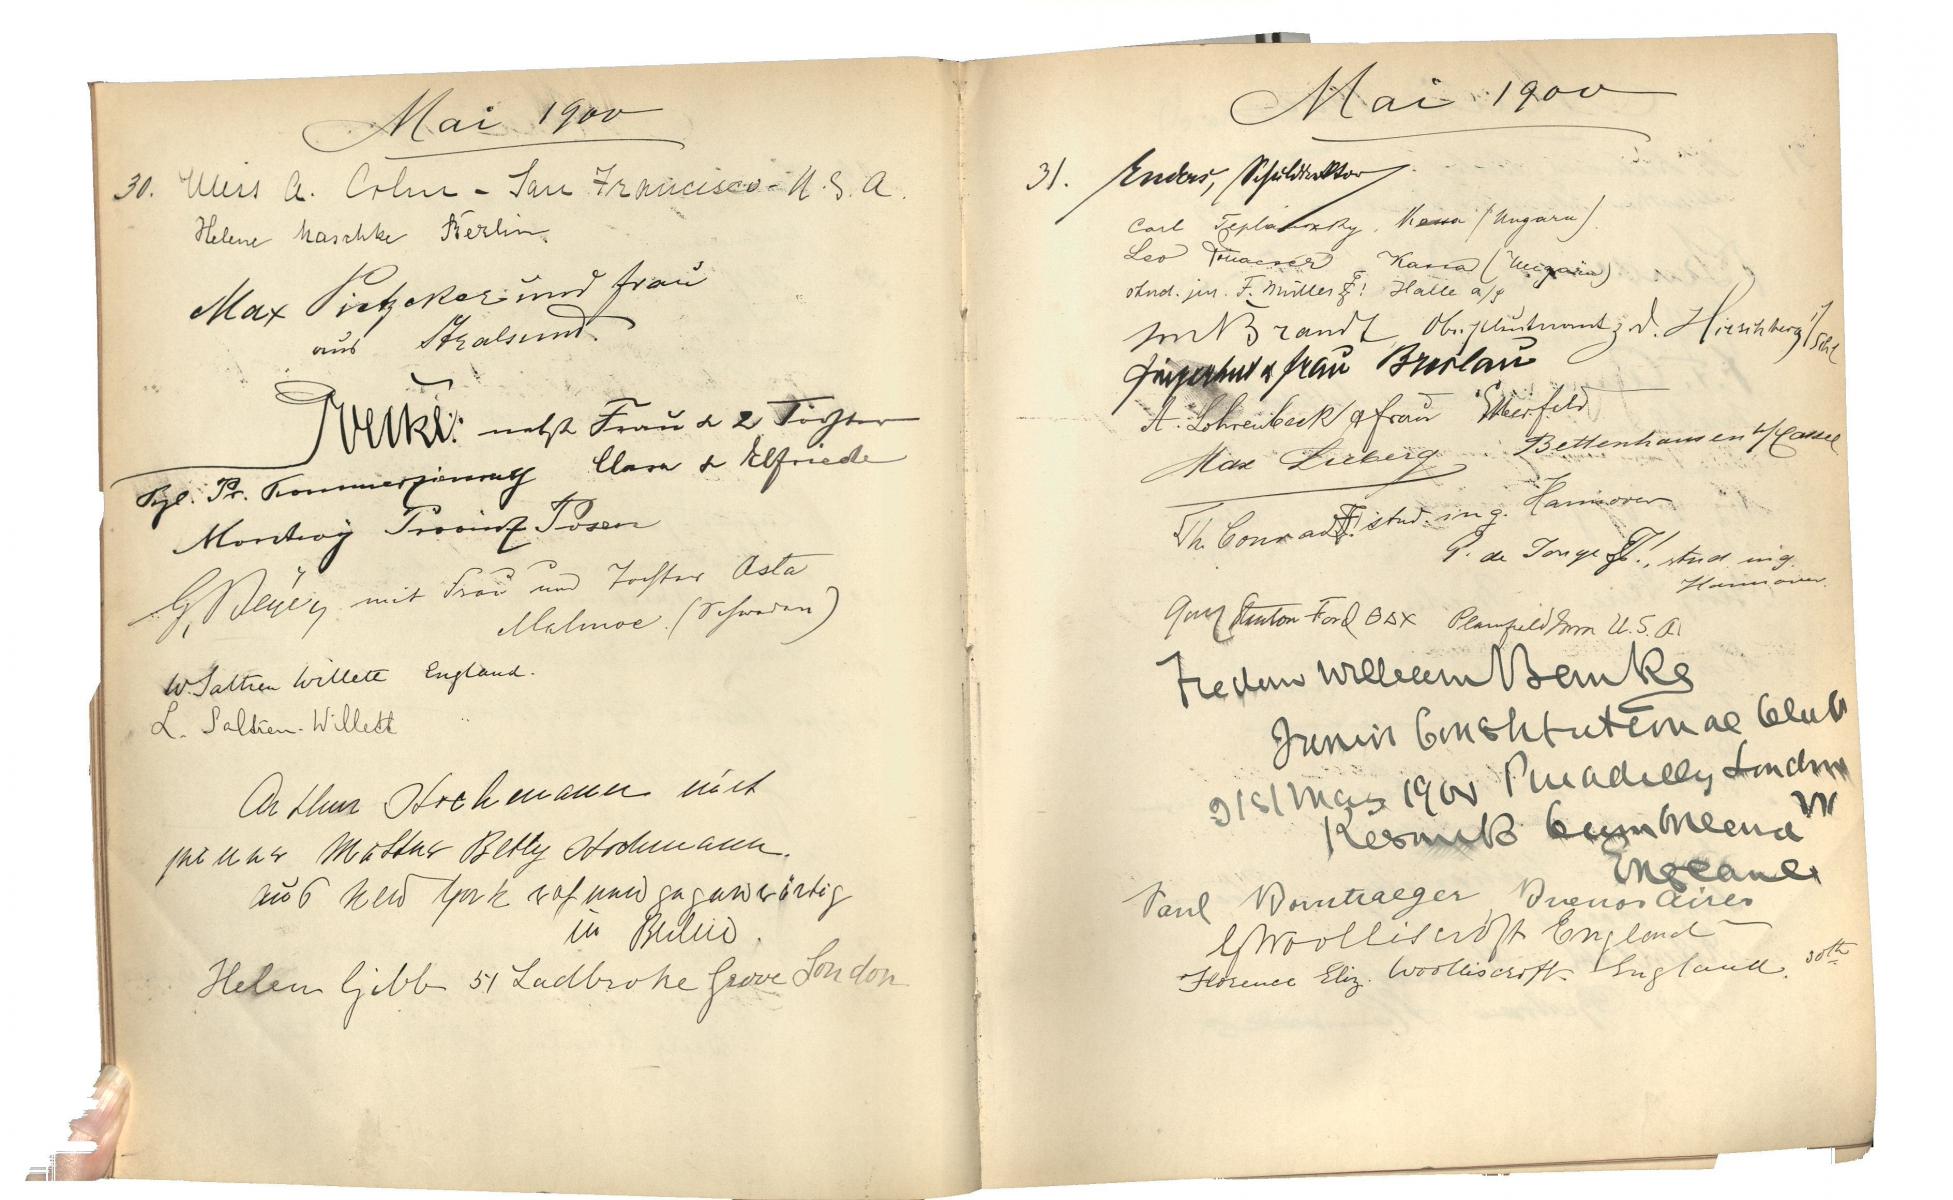 Mai 1900
30. Miss A. Cohn - San Francisco - U. S. A.
Helene Maschke Berlin.
Max Pietzcker und Frau
aus Stralsund.
nebst Frau & 2 Töchter
Kgl. Pr. Kommerzienrath Clara & Elfriede
Montwy Provinz Posen
G. mit Frau und Tochter Asta
Malmoe (Schweden)
W. Saltren Willett England.
L. Saltren-Willett
Arthur Hochmann nebst
seiner Mutter Betty Hochmann.
aus New York und gegenwärtig
in Berlin.
Helen Gibb 51 Ladbroke Grove London
Mai 1900
31. Enders, Schuldirektor
Carl Teplanszky, Kassa (Ungarn).
Leo Kassa (Ungarn)
stud. jur. F. Müller ! Halle a/S
von Brandt, Oberstleutnant z. D. Hirschberg i/Schl
& Frau Breslau
A. Lohrenbeck & Frau Elberfeld
Max Lieberg. Bettenhausen b/Cassel
Th. Conrad ! stud. ing. Hannover
P. de Jonge !, stud. ing.
Hannover.
Ford ΘΔΧ Plainfield Conn U. S. A.
William Bemke
Junior Constitutional Club
31st May 1900 Piccadilly London
W
Keswick Cumberland
England
Paul Borntraeger Buenos Aires
G Woolliscroft England
Florence Eliz. Woolliscroft - England. 30th